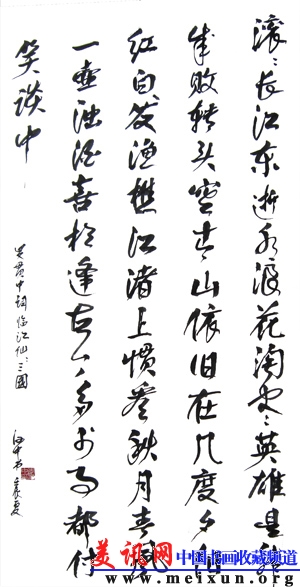 滚〻长江东逝水浪花淘尽英雄是非
成败转头空青山依旧在几度夕阳
红白发渔樵江渚上惯看秋月春风
一壶浊酒喜相逢古今多少事都付
笑谈中
贯中词临江仙三国
美讯网
中国书画收藏频道
www.meixun.org